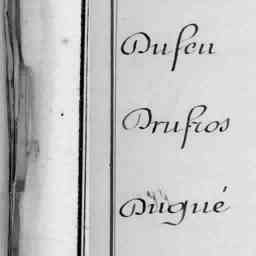 Dufeu
Drufros
Dugué